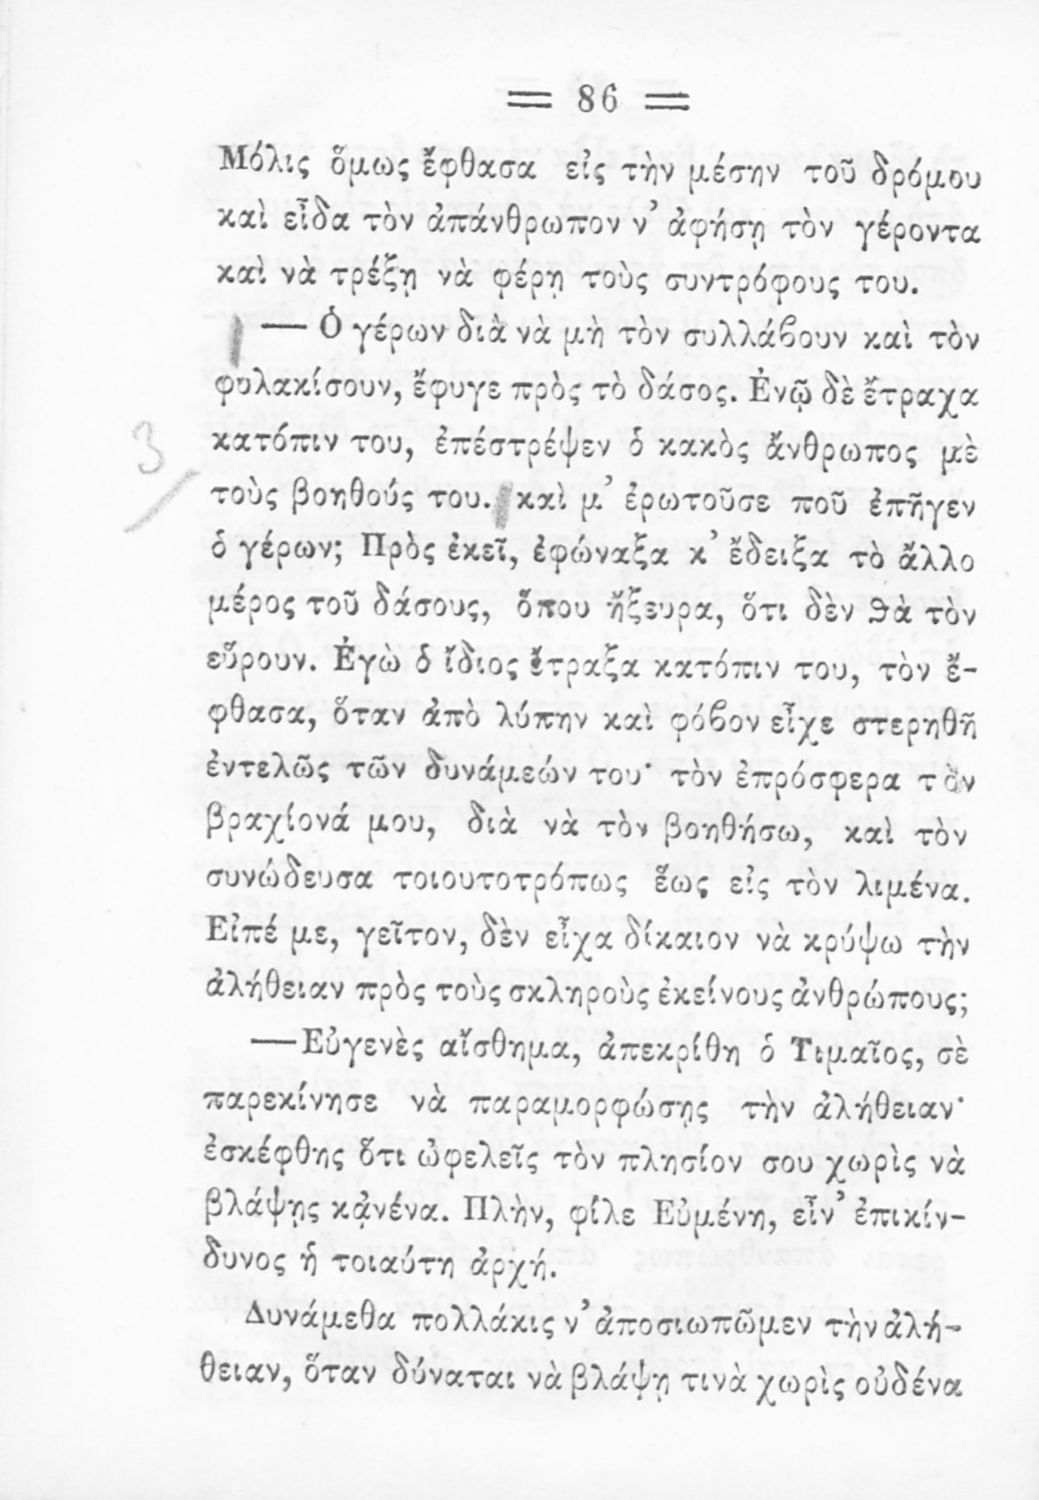 = 86 =
Μόλις ὅμως ἔφθασα εἰς τὴν μέσην τοῦ δρόμου
καὶ εἶδα τὸν ἀπάνθρωπον ν’ ἀφήσῃ τὸν γέροντα
καὶ νὰ τρέξῃ νὰ φέρῃ τοὺς συντρόφους του.
— Ὁ γέρων διὰ νὰ μὴ τὸν συλλάβουν καὶ τὸν
φυλακίσουν, ἔφυγε πρὸς τὸ δάσος. Ἐνῷ δὲ ἔτραχα
κατόπιν του, ἐπέστρέψεν ὁ κακὸς ἄνθρωπος μὲ
3
τοὺς βοηθούς του. καὶ μ’ ἐρωτοῦσε ποῦ ἐπῆγεν
ὁ γέρων; Πρὸς ἐκεῖ, ἐφώναξα κ’ ἔδειξα τὸ ἄλλο
μέρος τοῦ δάσους, ὅπου ἤξευρα, ὅτι δὲν θὰ τὸν
εὕρουν. Ἐγὼ ὁ ἴδιος ἔτραξα κατόπιν του, τὸν ἔ-
φθασα, ὅταν ἀπὸ λύπην καὶ φόβον εἶχε στερηθῆ
ἐντελῶς τῶν δυνάμεών του· τὸν ἐπρόσφερα τὸν
βραχίονά μου, διὰ νὰ τὸν βοηθήσω, καὶ τὸν
συνώδευσα τοιουτοτρόπως ἕως εἰς τὸν λιμένα.
Εἰπέ με, γεῖτον, δὲν εἶχα δίκαιον νὰ κρύψω τὴν
ἀλήθειαν πρὸς τοὺς σκληροὺς ἐκείνους ἀνθρώπους;
— Εὐγενὲς αἴσθημα, ἀπεκρίθη ὁ Τιμαῖος, σὲ
παρεκίνησε νὰ παραμορφώσῃς τὴν ἀλήθειαν·
ἐσκέφθης ὅτι ὠφελεῖς τὸν πλησίον σου χωρὶς νὰ
βλάψῃς κᾀνένα. Πλὴν, φίλε Εὐμένη, εἶν’ ἐπικίν-
δυνος ἡ τοιαύτη ἀρχή.
Δυνάμεθα πολλάκις ν’ ἀποσιωπῶμεν τὴν ἀλή-
θειαν, ὅταν δύναται νὰ βλάψῃ τινὰ χωρὶς οὐδένα